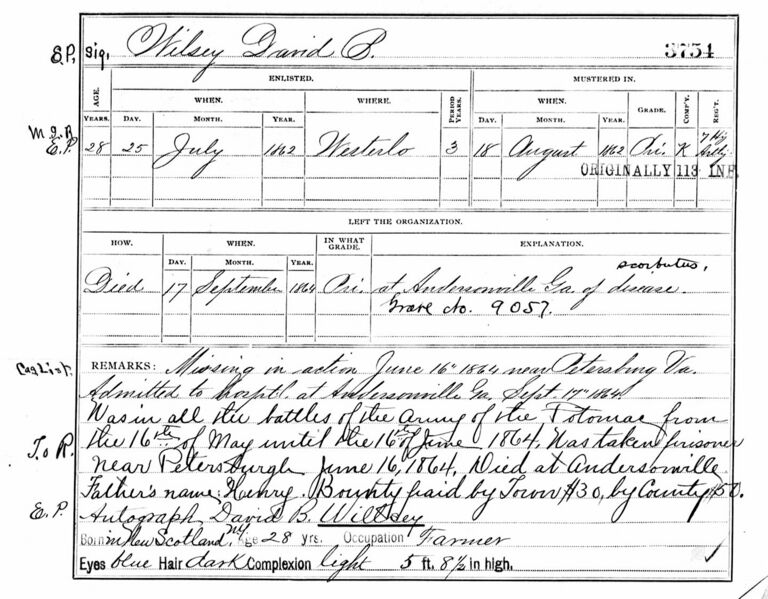 E.P. sig, Wilsey David B. 3754
ENLISTED. MUSTERED IN.
AGE. WHEN. WHERE. PERIOD YEARS. WHEN. GRADE. COMP'Y. REG'T.
YEARS. DAY. MONTH. YEAR. DAY. MONTH. YEAR.
E.P. 28 25 July 1862 Westerlo 3 18 August 1862 Pri. K 7 Hy Arty
ORIGINALLY 113 INF.
LEFT THE ORGANIZATION.
HOW. WHEN. IN WHAT GRADE. EXPLANATION.
DAY. MONTH. YEAR.
scorbutus,
Died 17 September 1864 Pri. at Andersonville Ga. of disease
Grave No. 9057.
REMARKS: Missing in action June 16" 1864 near Petersburg Va.
Admitted to hosptl. at Andersonville Ga, Sept. 17" 1864
Was in all the battles of the Army of the Potomac from
T. o R. the 16th of May until the 16th of June 1864. Was taken prisoner
near Petersburgh June 16, 1864, Died at Andersonville
Father's name: Henry. Bounty paid by Town $30, by County $50.
E.P. Autograph David B. Wiltsey
Born in New Scotland, NY Age 28 yrs. Occupation Farmer
Eyes blue Hair dark Complexion light 5 ft. 8½ in high.